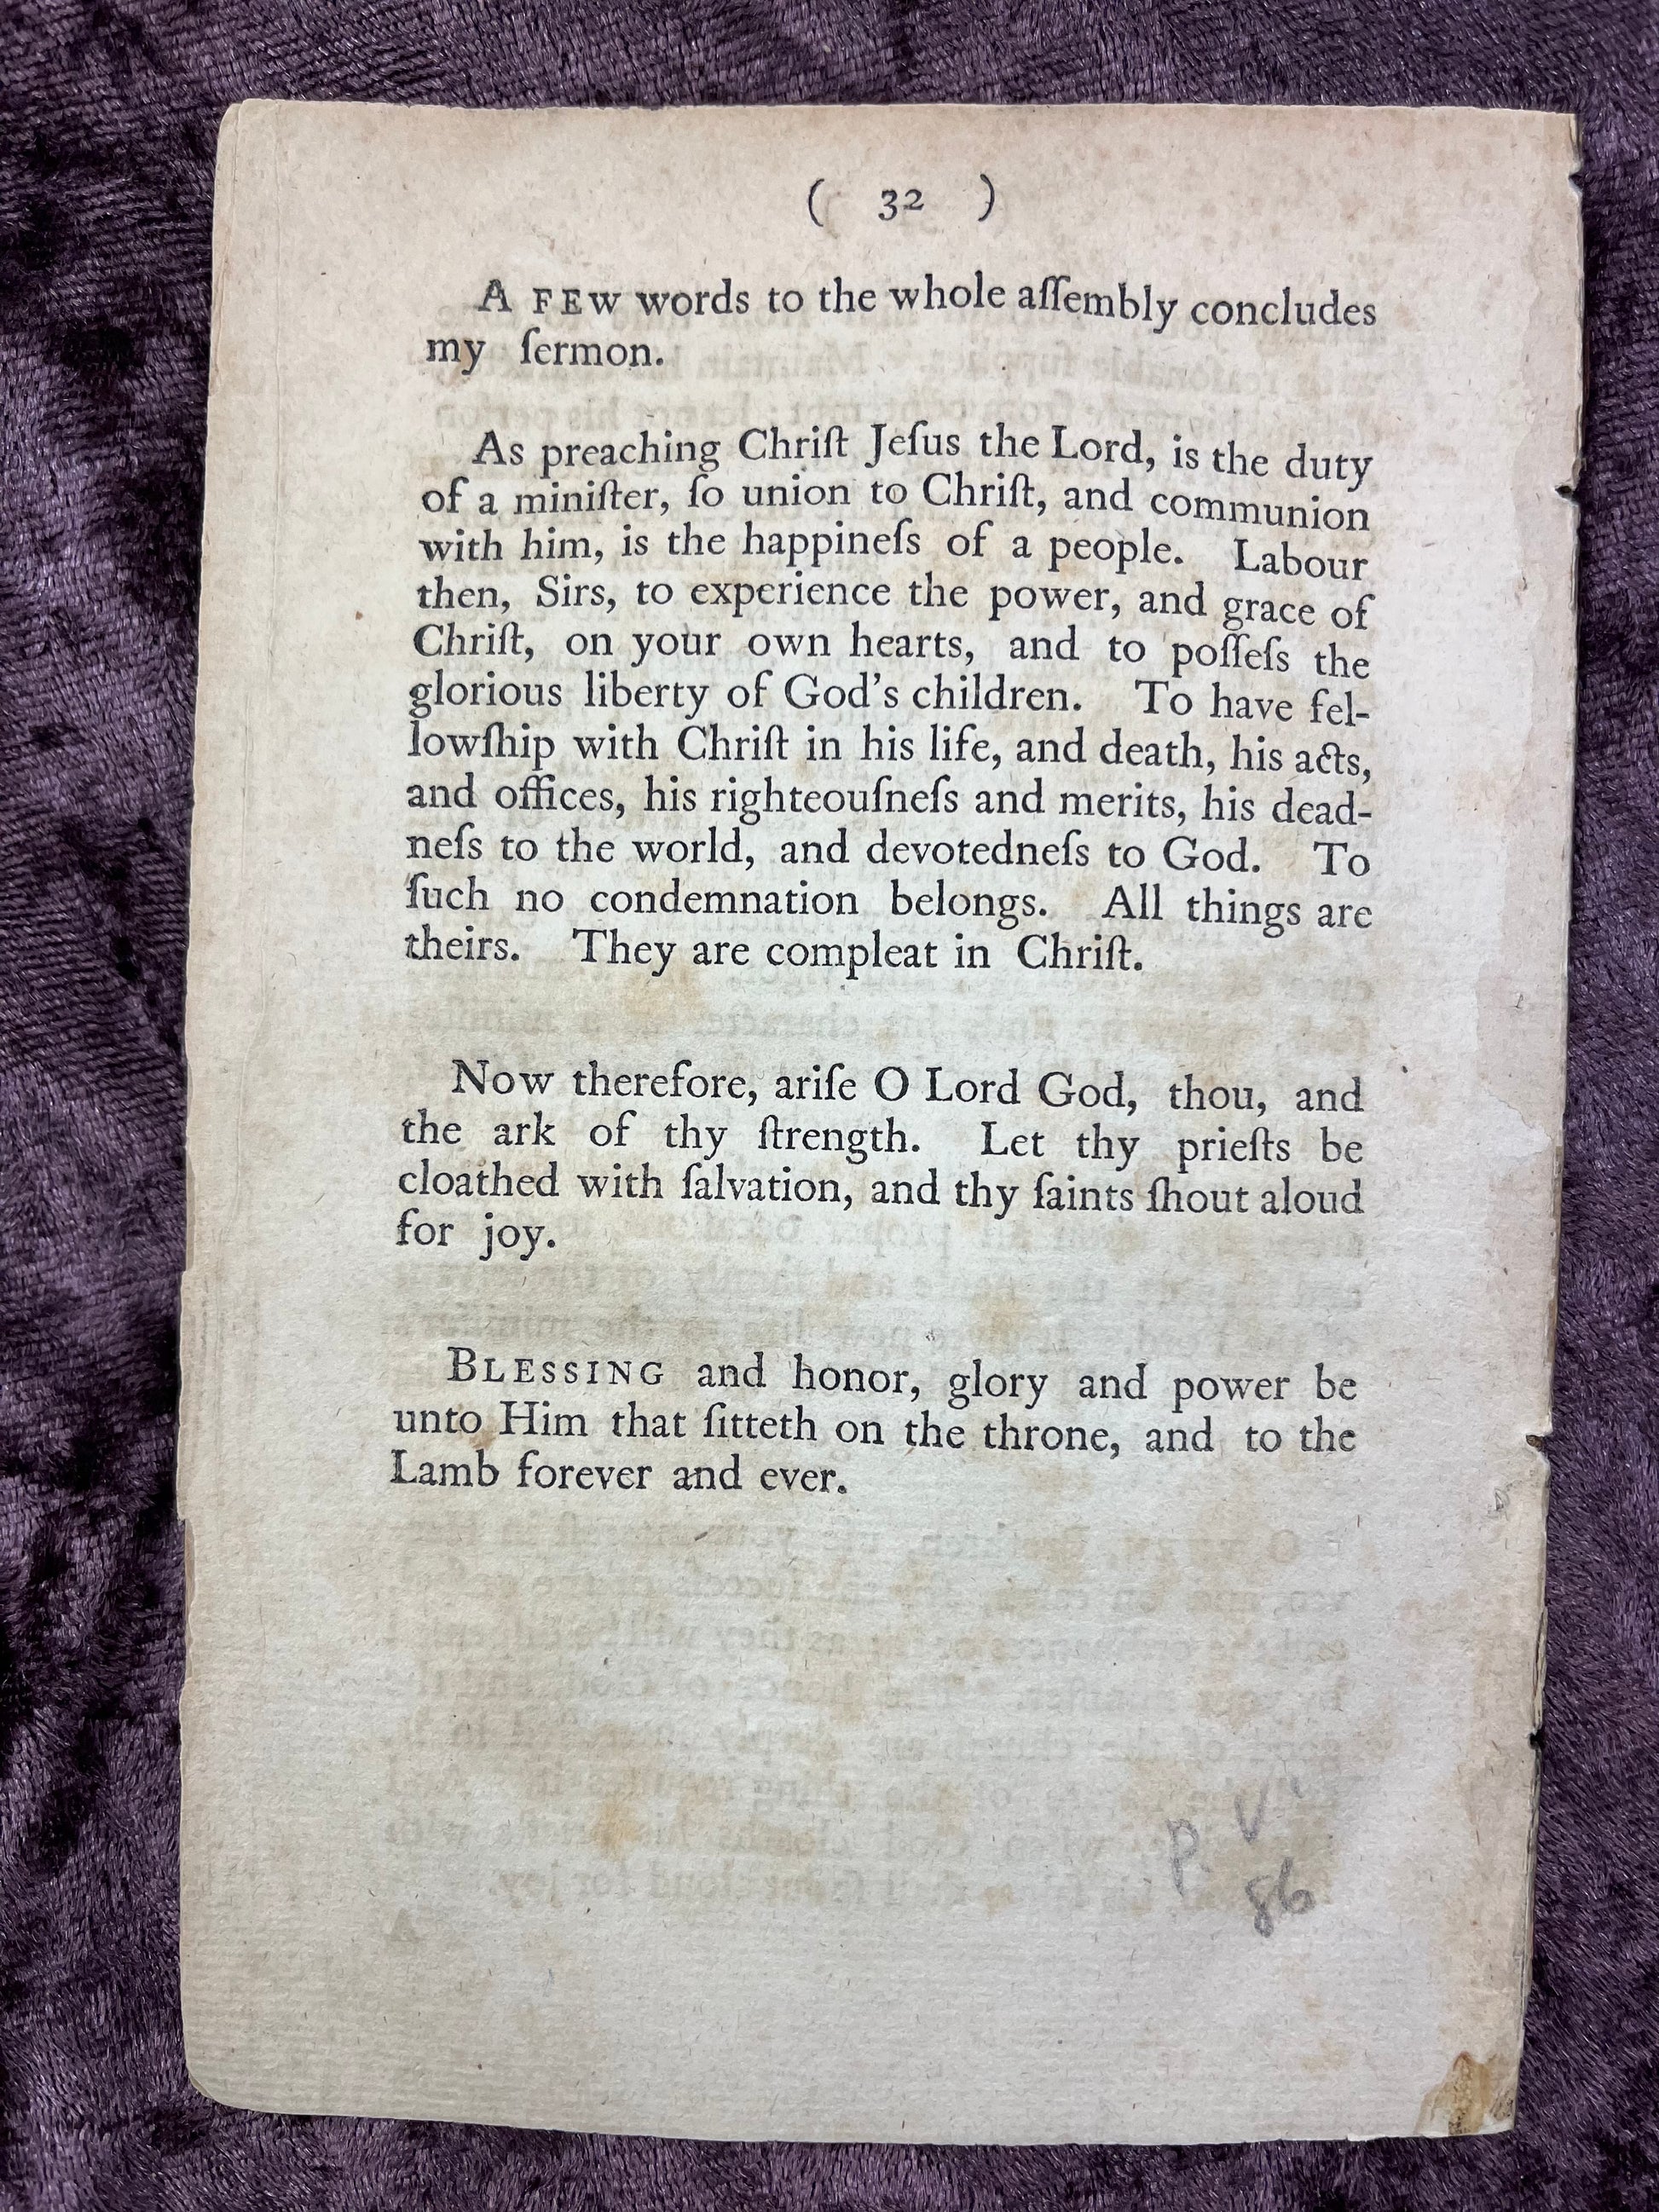 ( 32 )
A FEW words to the whole aſſembly concludes
my ſermon.
As preaching Chriſt Jeſus the Lord, is the duty
of a miniſter, ſo union to Chriſt, and communion
with him, is the happineſs of a people. Labour
then, Sirs, to experience the power, and grace of
Chriſt, on your own hearts, and to poſſeſs the
glorious liberty of God's children. To have fel-
lowſhip with Chriſt in his life, and death, his acts,
and offices, his righteouſneſs and merits, his dead-
neſs to the world, and devotedneſs to God. To
ſuch no condemnation belongs. All things are
theirs. They are compleat in Chriſt.
Now therefore, ariſe O Lord God, thou, and
the ark of thy ſtrength. Let thy prieſts be
cloathed with ſalvation, and thy ſaints ſhout aloud
for joy.
BLESSING and honor, glory and power be
unto Him that ſitteth on the throne, and to the
Lamb forever and ever.
P. V
86